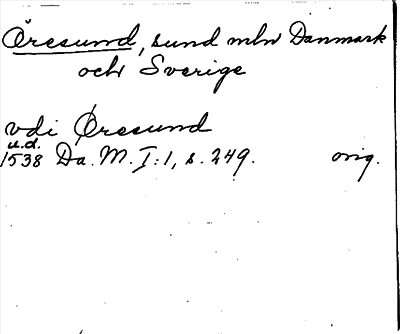 Öresund, sund mln Danmark
och Sverige
vdi Øresund
u.d.
1538 Da. M. I:1, s. 249. orig.